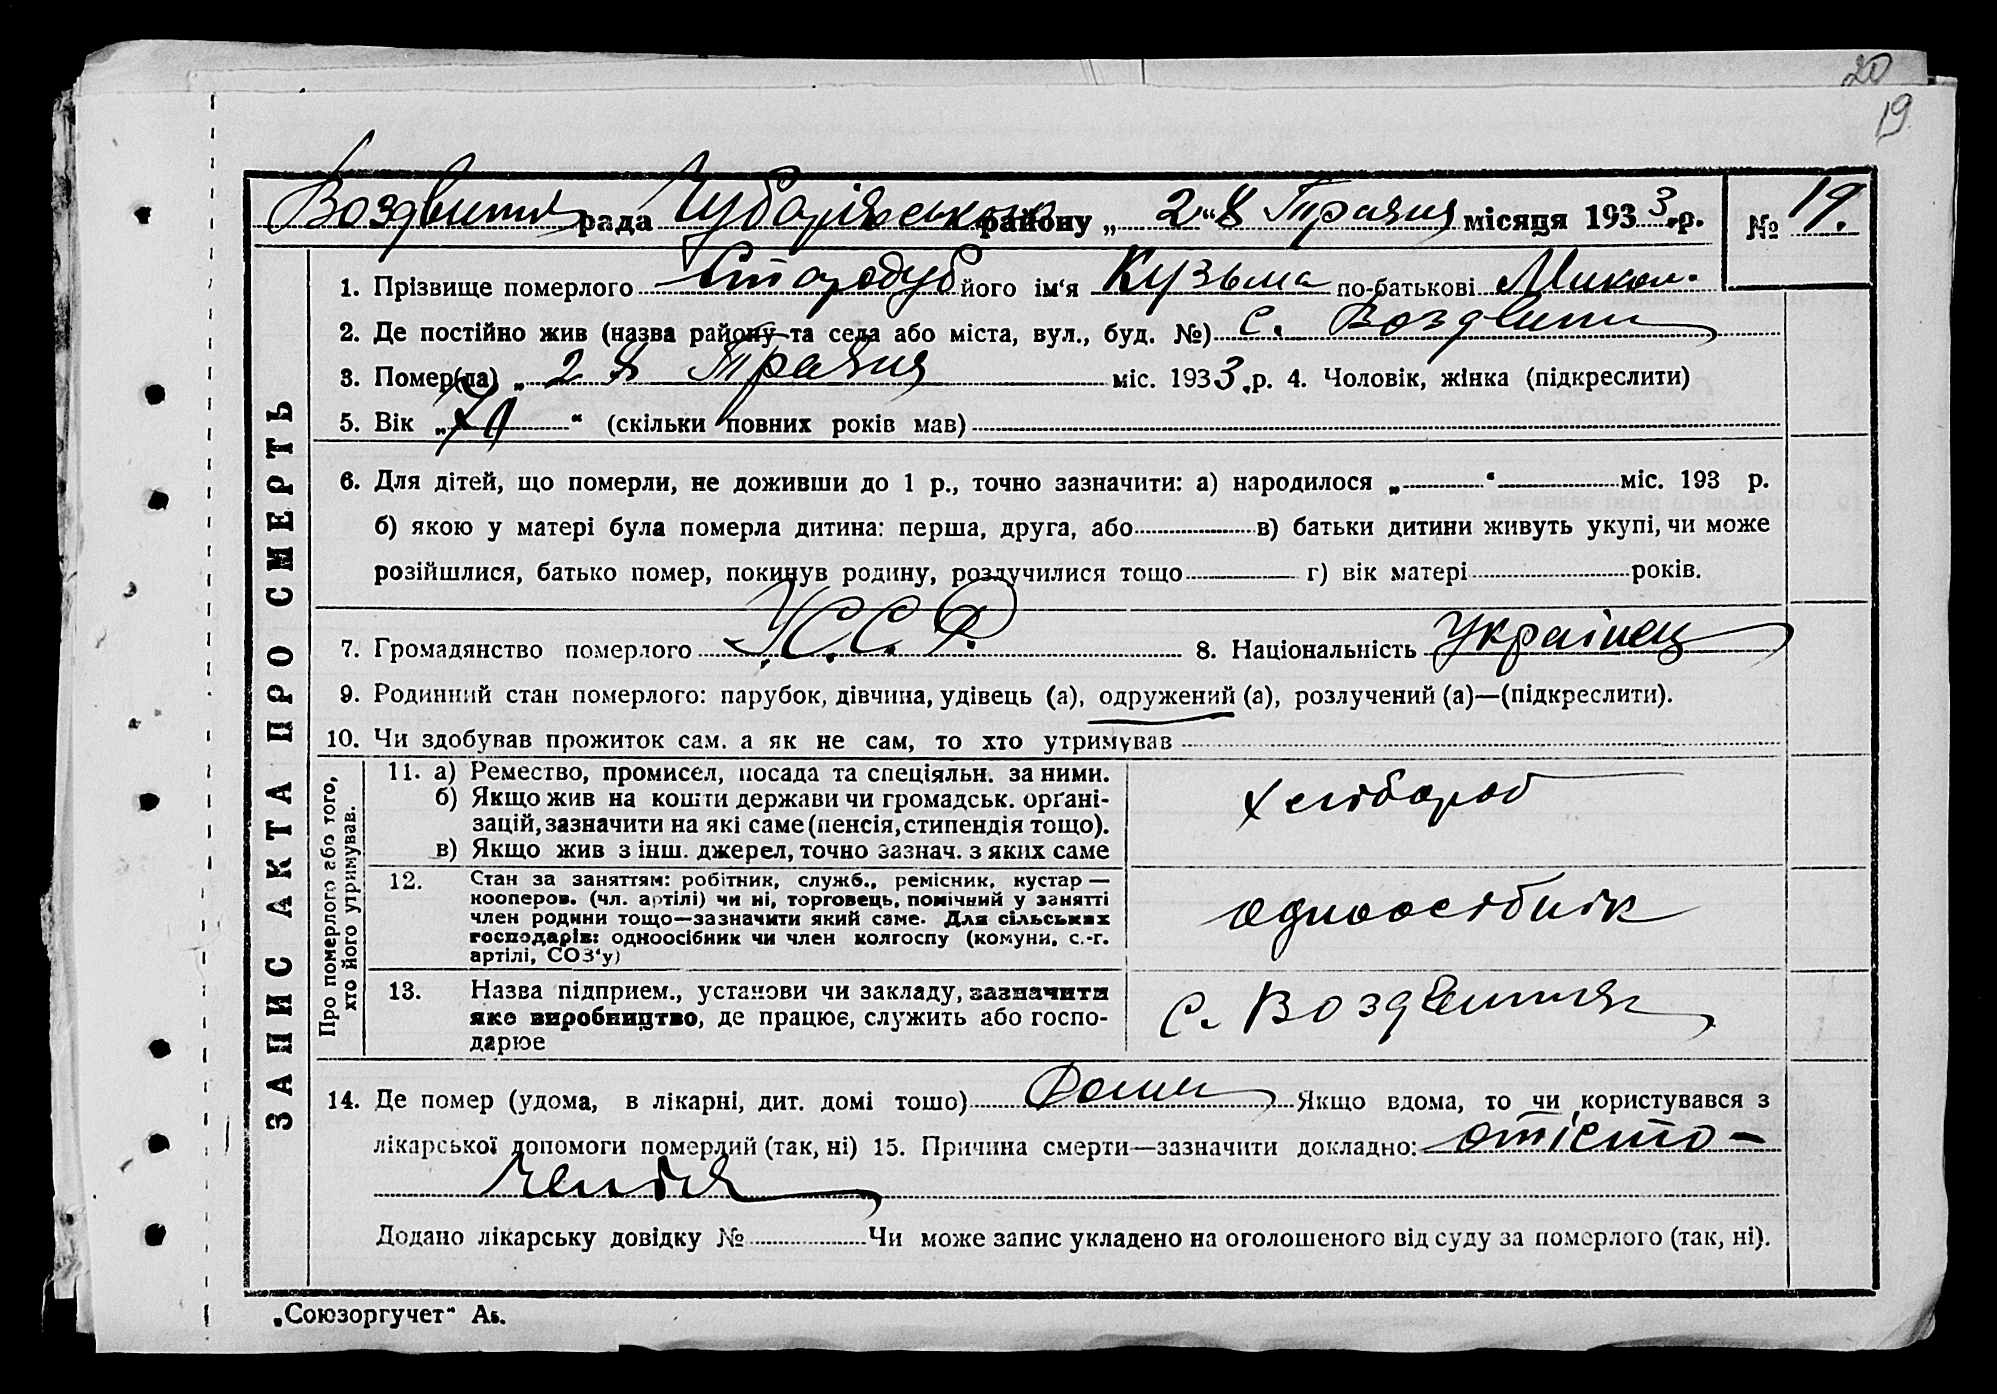 20
19
Воздвиття рада Чубарівського району „ 2 “ 8 Травня місяця 1933 р. № 19.
1. Прізвище померлого Стародуб його ім‘я Кузьма по-батькові Микол.
2. Де постійно жив (назва району та села або міста, вул., буд. №) с.
3. Помер(ла) „ 2 8 Травня міс. 1933 р. 4. Чоловік, жінка (підкреслити)
5. Вік „ “ (скільки повних років мав)
6. Для дітей, що померли, не доживши до 1 р., точно зазначити: а) народилося „ “ міс. 193 р.
б) якою у матері була померла дитина: перша, друга, або в) батьки дитини живуть укупі, чи може
розійшлися, батько помер, покинув родину, розлучилися тощо г) вік матері років.
7. Громадянство померлого У.С.С.Р. 8. Національність Українец
9. Родинний стан померлого: парубок, дівчина, удівець (а), одружений (а), розлучений (а)—(підкреслити).
10. Чи здобував прожиток сам. а як не сам, то хто утримував
ЗАПИС АКТА ПРО СМЕРТЬ
Про померлого або того,
хто його утримував.
11. а) Ремество, промисел, посада та спеціяльн. за ними.
б) Якщо жив на кошти держави чи громадськ. орґані-
зацій, зазначити на які саме (пенсія, стипендія тощо).
в) Якщо жив з інш. джерел, точно зазнач. з яких саме
Хлібороб
12. Стан за заняттям: робітник, служб., ремісник, кустар —
кооперов. (чл. артілі) чи ні, торговець, помічний у занятті
член родини тощо—зазначити який саме. Для сільських
господарів: одноосібник чи член колгоспу (комуни, с.-г.
артілі, СОЗ‘у)
одноосібник
13. Назва підприєм., установи чи закладу, зазначити
яке виробництво, де працює, служить або госпо-
дарює
с. Воздвиття
14. Де помер (удома, в лікарні, дит. домі тощо) Дома Якщо вдома, то чи користувався з
лікарської допомоги померлий (так, ні) 15. Причина смерти—зазначити докладно:
Додано лікарську довідку № Чи може запис укладено на оголошеного від суду за померлого (так, ні).
„Союзоргучет“ Аь.